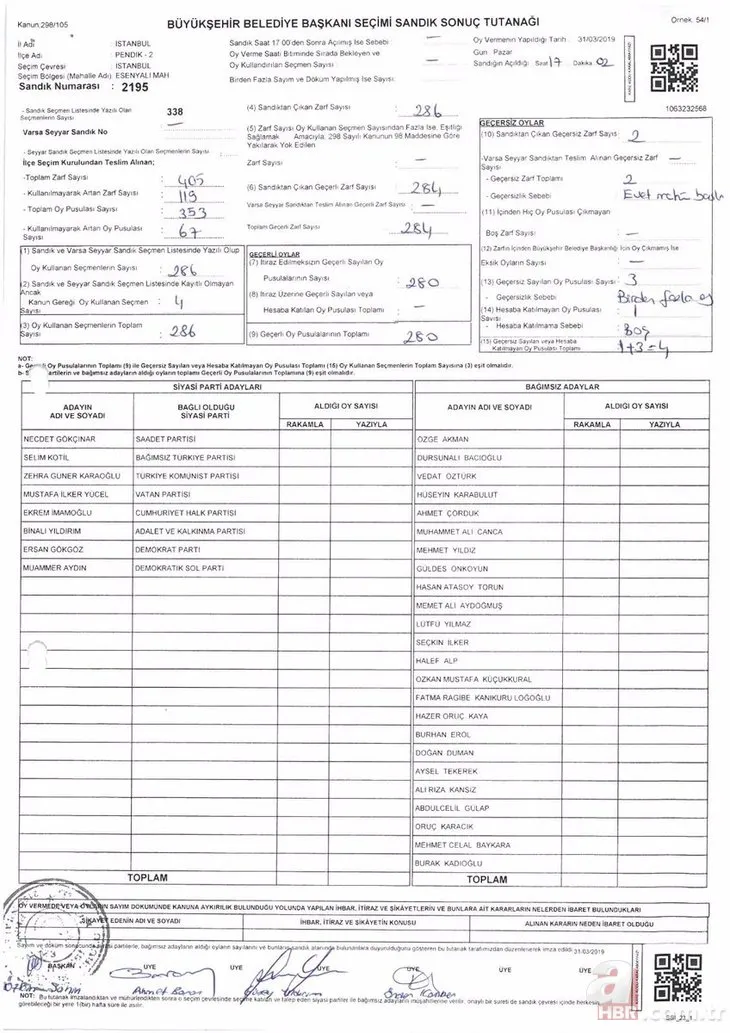 Kanun.298/105
BÜYÜKŞEHİR BELEDİYE BAŞKANI SEÇİMİ SANDIK SONUÇ TUTANAĞI
Örnek. 54/1
İl Adı : İSTANBUL
İlçe Adı : PENDİK - 2
Seçim Çevresi : İSTANBUL
Seçim Bölgesi (Mahalle Adı): ESENYALI MAH
Sandık Numarası : 2195
Sandık Saat 17 00'den Sonra Açılmış İse Sebebi : —
Oy Verme Saati Bitiminde Sırada Bekleyen ve
Oy Kullandırılan Seçmen Sayısı : —
Birden Fazla Sayım ve Döküm Yapılmış İse Sayısı:
Oy Vermenin Yapıldığı Tarih : 31/03/2019
Gün : Pazar
Sandığın Açıldığı Saat 17 Dakika 02
1063232568
- Sandık Seçmen Listesinde Yazılı Olan
Seçmenlerin Sayısı : 338
Varsa Seyyar Sandık No —
- Seyyar Sandık Seçmen Listesinde Yazılı Olan Seçmenlerin Sayısı :
İlçe Seçim Kurulundan Teslim Alınan;
-Toplam Zarf Sayısı : 405
- Kullanılmayarak Artan Zarf Sayısı : 119
- Toplam Oy Pusulası Sayısı : 353
- Kullanılmayarak Artan Oy Pusulası
Sayısı : 67
(1) Sandık ve Varsa Seyyar Sandık Seçmen Listesinde Yazılı Olup
Oy Kullanan Seçmenlerin Sayısı : 286
(2) Sandık ve Seyyar Sandık Seçmen Listesinde Kayıtlı Olmayan
Ancak
Kanun Gereği Oy Kullanan Seçmen : 4
Sayısı
(3) Oy Kullanan Seçmenlerin Toplam
Sayısı : 286
(4) Sandıktan Çıkan Zarf Sayısı : 286
(5) Zarf Sayısı Oy Kullanan Seçmen Sayısından Fazla İse, Eşitliği
Sağlamak Amacıyla, 298 Sayılı Kanunun 98 Maddesine Göre
Yakılarak Yok Edilen
Zarf Sayısı : —
(6) Sandıktan Çıkan Geçerli Zarf Sayısı : 284
Varsa Seyyar Sandıktan Teslim Alınan Geçerli Zarf Sayısı : —
Toplam Geçerli Zarf Sayısı : 284
GEÇERLİ OYLAR
(7) İtiraz Edilmeksizin Geçerli Sayılan Oy
Pusulalarının Sayısı : 280
(8) İtiraz Üzerine Geçerli Sayılan veya
Hesaba Katılan Oy Pusulası Sayısı : —
(9) Geçerli Oy Pusulalarının Toplamı : 280
GEÇERSİZ OYLAR
(10) Sandıktan Çıkan Geçersiz Zarf Sayısı : 2
-Varsa Seyyar Sandıktan Teslim Alınan Geçersiz Zarf
Sayısı : —
- Geçersiz Zarf Toplamı : 2
- Geçersizlik Sebebi : Evet
(11) İçinden Hiç Oy Pusulası Çıkmayan
Boş Zarf Sayısı : —
(12) Zarfın İçinden Büyükşehir Belediye Başkanlığı İçin Oy Çıkmamış İse
Eksik Oyların Sayısı : —
(13) Geçersiz Sayılan Oy Pusulası Sayısı : 3
- Geçersizlik Sebebi : Birden fazla
(14) Hesaba Katılmayan Oy Pusulası
Sayısı : 1
- Hesaba Katılmama Sebebi : Boş
(15) Geçersiz Sayılan veya Hesaba
Katılmayan Oy Pusulası Toplamı : 1+3=4
NOT:
Oy Pusulalarının Toplamı (9) ile Geçersiz Sayılan veya Hesaba Katılmayan Oy Pusulası Toplamı (15) Oy Kullanan Seçmenlerin Toplam Sayısına (3) eşit olmalıdır.
partilerin ve bağımsız adayların aldığı oyların toplamı Geçerli Oy Pusulalarının Toplamına (9) eşit olmalıdır.
SİYASİ PARTİ ADAYLARI
BAĞIMSIZ ADAYLAR
ADAYIN
ADI VE SOYADI
BAĞLI OLDUĞU
SİYASİ PARTİ
ALDIĞI OY SAYISI
RAKAMLA YAZIYLA
ADAYIN ADI VE SOYADI
ALDIĞI OY SAYISI
RAKAMLA YAZIYLA
NECDET GÖKÇINAR SAADET PARTİSİ ÖZGE AKMAN
SELİM KOTİL BAĞIMSIZ TÜRKİYE PARTİSİ DURSUNALİ BACIOĞLU
ZEHRA GÜNER KARAOĞLU TÜRKİYE KOMÜNİST PARTİSİ VEDAT ÖZTÜRK
MUSTAFA İLKER YÜCEL VATAN PARTİSİ HÜSEYİN KARABULUT
EKREM İMAMOĞLU CUMHURİYET HALK PARTİSİ AHMET ÇORDUK
BİNALİ YILDIRIM ADALET VE KALKINMA PARTİSİ MUHAMMET ALİ CANCA
ERSAN GÖKGÖZ DEMOKRAT PARTİ MEHMET YILDIZ
MUAMMER AYDIN DEMOKRATİK SOL PARTİ GÜLDES ÖNKOYUN
HASAN ATASOY TORUN
MEMET ALİ AYDOĞMUŞ
LÜTFÜ YILMAZ
SEÇKİN İLKER
HALEF ALP
ÖZKAN MUSTAFA KÜÇÜKKURAL
FATMA RAGİBE KANIKURU LOĞOĞLU
HAZER ORUÇ KAYA
BURHAN EROL
DOĞAN DUMAN
AYSEL TEKEREK
ALİ RIZA KANSIZ
ABDULCELİL GÜLAP
ORUÇ KARACIK
MEHMET CELAL BAYKARA
BURAK KADIOĞLU
TOPLAM TOPLAM
OY VERMEDE VEYA OYLARIN SAYIM DÖKÜMÜNDE KANUNA AYKIRILIK BULUNDUĞU YOLUNDA YAPILAN İHBAR, İTİRAZ VE ŞİKAYETLERİN VE BUNLARA AİT KARARLARIN NELERDEN İBARET BULUNDUKLARI
ŞİKAYET EDENİN ADI VE SOYADI İHBAR, İTİRAZ VE ŞİKAYETİN KONUSU ALINAN KARARIN NEDEN İBARET OLDUĞU
BAŞKAN ÜYE ÜYE ÜYE ÜYE ÜYE
Ahmet Baran
a
HBR.com.tr